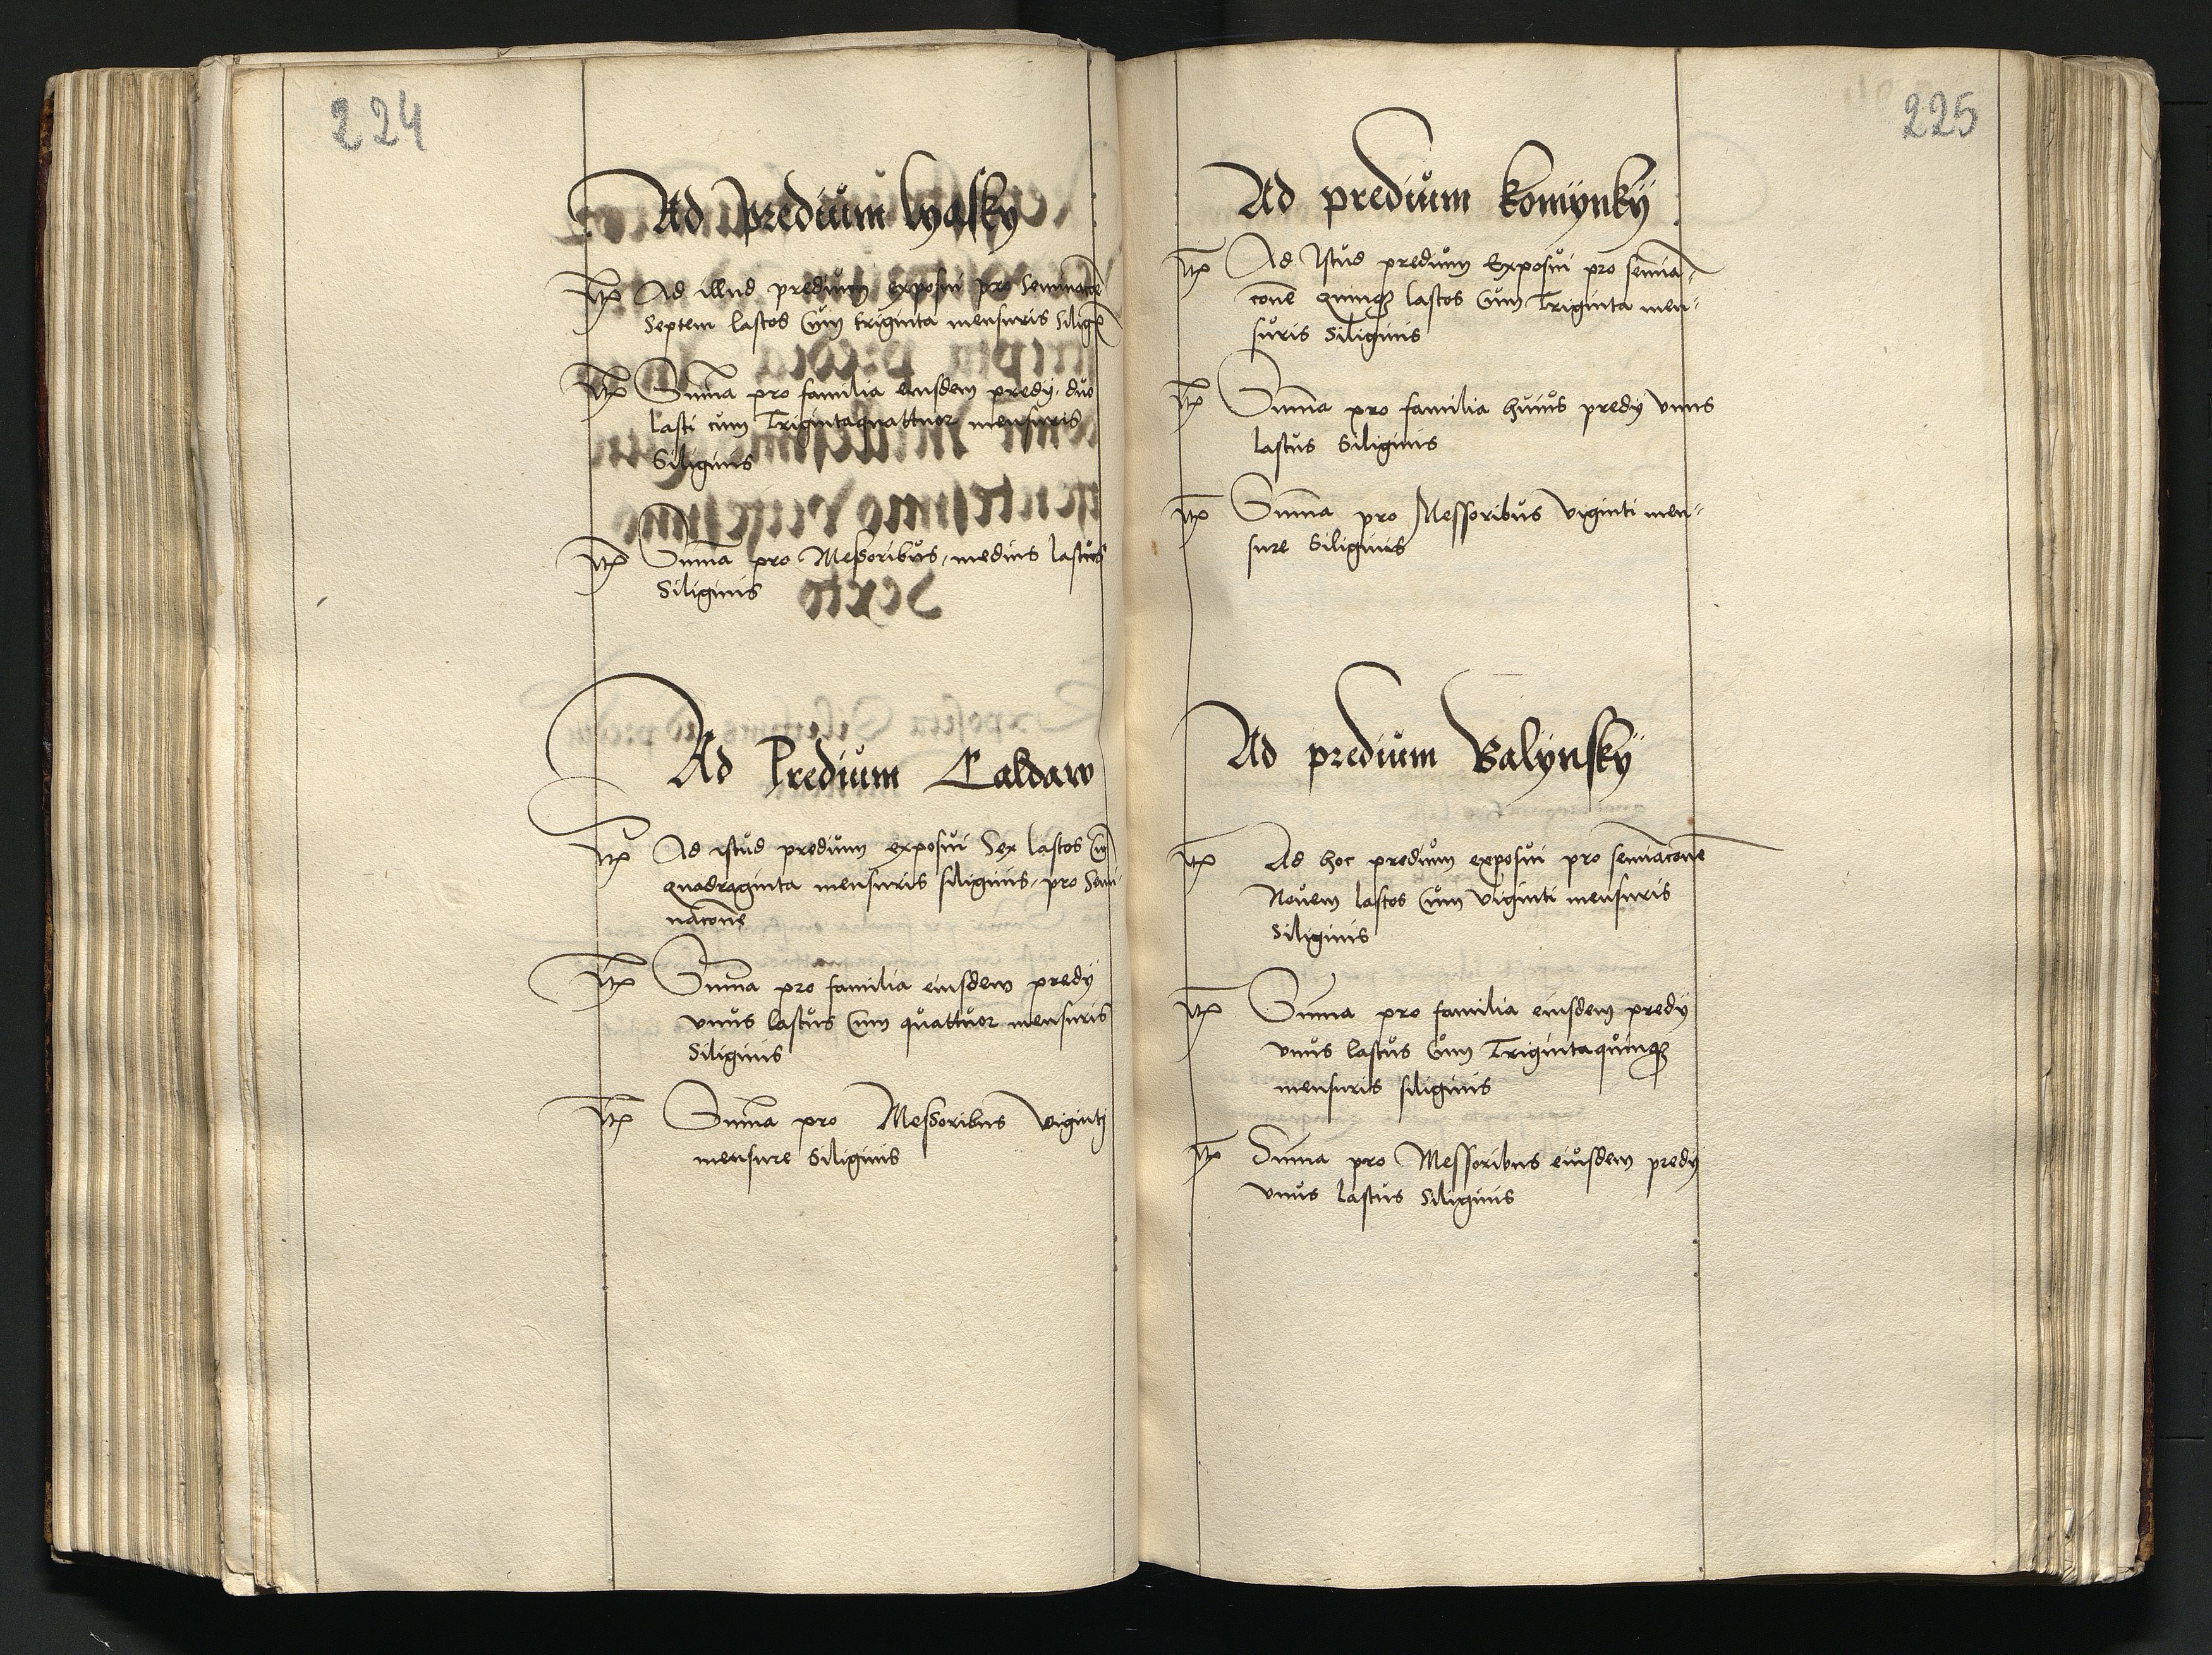 224
Ad Predium lyasky
Itē Ad illud predium exposui pro Seminacōe
Septem lastos Cum triginta mensuris Silig
Itē Suma pro familia eiusdem predy duo
lasti cum Trigintaquattuor mensuris
Siliginis
Itē Suma pro Messoribus, medius lastus
Siliginis
Ad Predium Caldaw
Itē Ad istud predium exposui Sex lastos Cū
quadraginta mensuris siliginis, pro Semi-
nacone
Itē Suma pro familia eiusdem predÿ
vnus lastus Cum quattuor mensuris
Siliginis
Itē Suma pro Messoribus viginti
mensure Siliginis
225
Ad predium komÿnkÿ
Itē Ad Istud predium Exposui pro semina-
cone quinqꝫ lastos Cum Triginta men-
suris Siliginis
Itē Suma pro familia huius predÿ vnus
lastus Siliginis
Itē Suma pro Messoribus viginti men-
sure Siliginis
Ad predium Balÿnskÿ
Itē Ad hoc predium exposui pro seminaconē
Nouem lastos Cum viginti mensuris
Siliginis
Itē Suma pro familia eiusdem predÿ
vnus lastus Cum Trigintaquinqꝫ
mensuris siliginis
Itē Suma pro Messoribus eiusdem predÿ
vnus lastus Siliginis